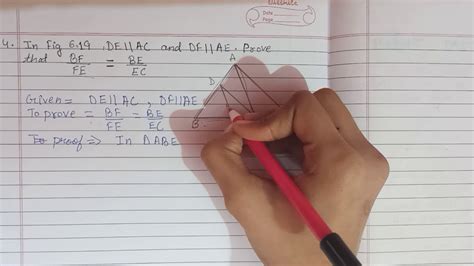 Date
Page
4. In Fig 6.19, DE||AC and DF||AE. Prove
that BF/FE = BE/EC
A
D
Given = DE||AC, DF||AE
To prove = BF/FE = BE/EC
B
proof => In ΔABE